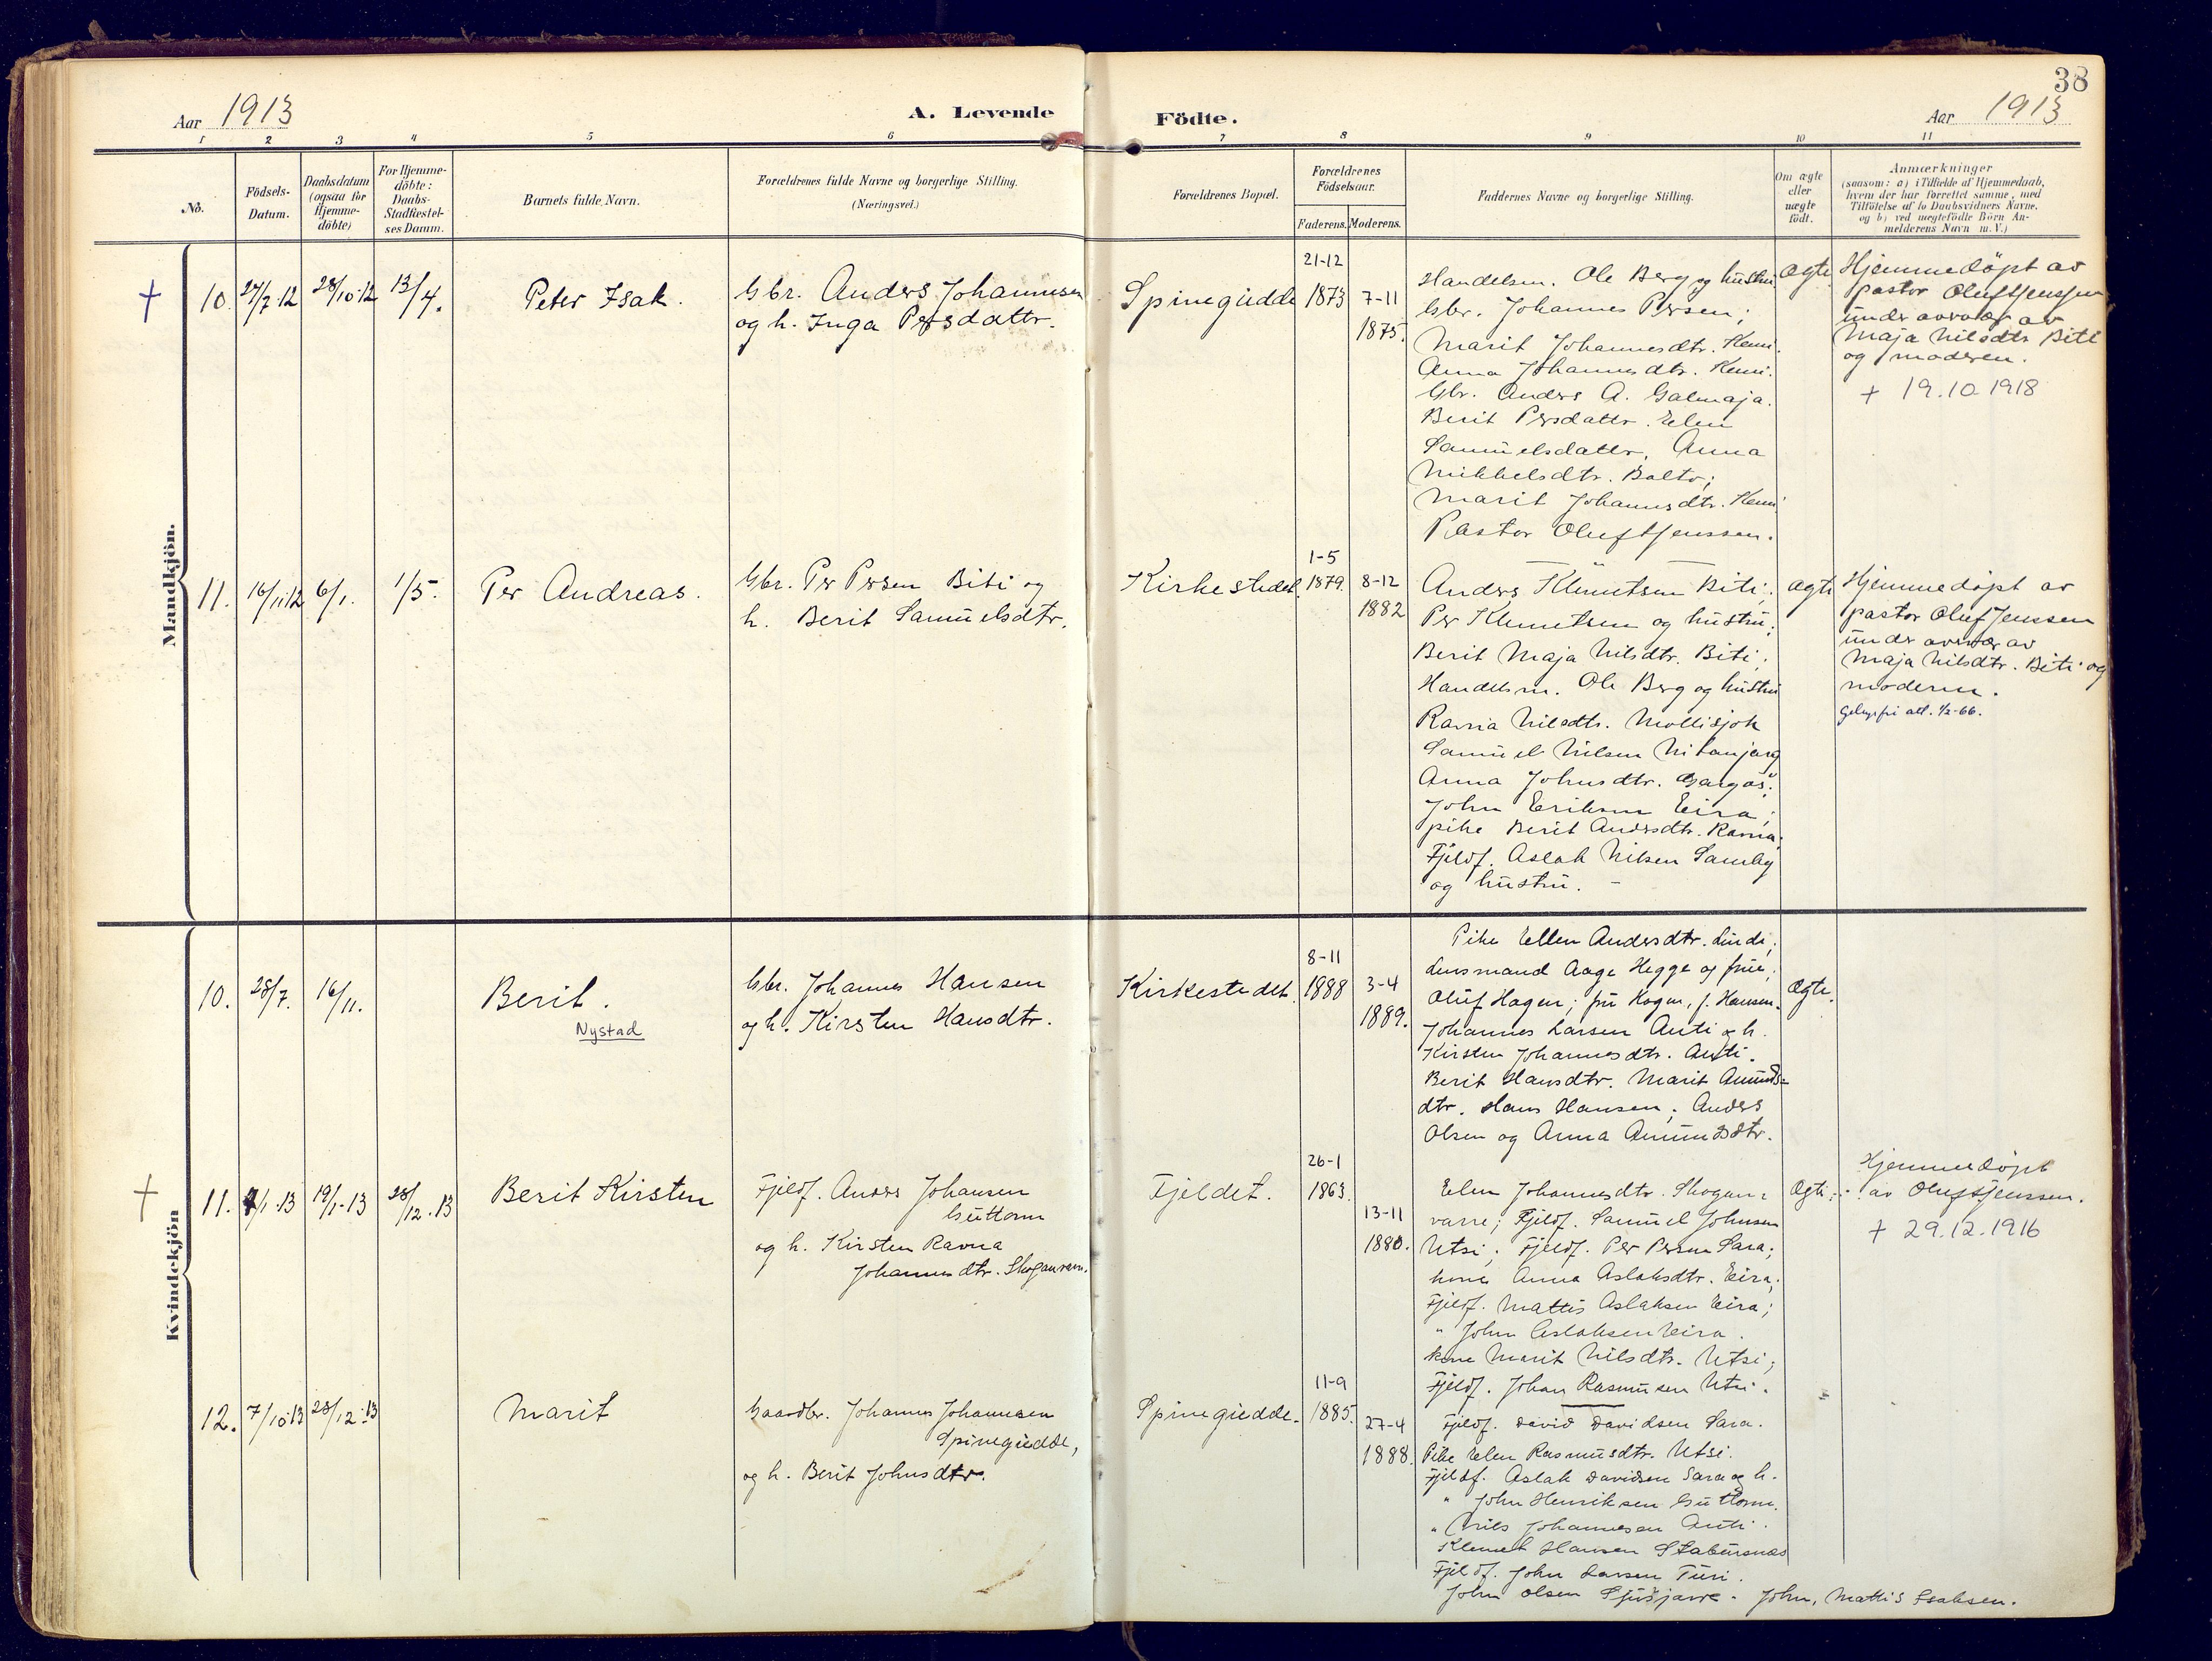 38
Aar 1913
A. Levende
Födte.
Aar 1913
1
2
3
4
5
6
7
8
9
10
11
No.
Födsels-
Datum.
Daabsdatum
(ogsaa for
Hjemme-
döbte)
For Hjemme-
döbte:
Daabs-
Stadfæstel-
ses Datum.
Barnets fulde Navn.
Forældrenes fulde Navne og borgerlige Stilling.
(Næringsvei.)
Forældrenes Bopæl.
Forældrenes
Födselsaar.
Faderens.
Moderens.
Faddernes Navne og borgerlige Stilling.
Om ægte
eller
uægte
födt.
Anmærkninger
(saasom: a) i Tilfælde af Hjemmedaab,
hvem der har forrettet samme, med
Tilföielse af to Daabsvidners Navne,
og b) ved uægtefödte Börn An-
melderens Navn m. V.)
Mandkjön.
†
10.
27/7.12
28/10.12
13/4.
Peter Isak.
Gbr. Anders Johannesen
og h. Inga Persdattr.
Spinegiedde
21-12
1873
7-11
1875.
Handelsm. Ole Berg og hustru
Gbr. Johannes Persen;
Marit Johannesdtr. Kemi.
Anna Johannesdtr. Kemi.
Gbr. Anders A. Galmaja.
Berit Persdattr. Elen
Samuelsdattr. Anna
Mikkelsdtr. Balto;
Marit Johannesdtr. Kemi
Pastor Oluf Jenssen.
Ægte
Hjemmedøpt av
pastor Oluf Jenssen
under overvær av
Maja Nilsdtr Biti
og moderen.
+ 19.10.1918
11.
16/11.12
6/1.
1/5.
Per Andreas.
Gbr. Per Persen Biti og
h. Berit Samuelsdtr.
Kirkestedet.
1-5
1879.
8-12
1882
Anders Klemetsen Biti;
Per Klemetsen og hustru;
Berit Maja Nilsdtr. Biti;
Handelsm. Ole Berg og hustru
Ravna Nilsdtr. Mollisjok
Samuel Nilsen
Anna Johnsdtr. Gargas;
John Eriksen Eira;
pike Berit Andersdtr. Ravna;
Fjeldf. Aslak Nilsen Somby
og hustru. -
ægte
Hjemmedøpt av
pastor Oluf Jenssen
under overvær av
Maja Nilsdtr. Biti og
moderen.
1/2-66.
Kvindekjön
10.
28/7.
16/11.
Berit.
Nystad
Gbr. Johannes Hansen
og h. Kirsten Hansdtr.
Kirkestedet.
8-11
1888
3-4
1889.
Pike Ellen Andersdtr. Lindi;
Lensmand Aage Hegge og frue;
Oluf Hagen; fru Hagen, f. Hansen.
Johannes Larsen Anti og h.
Kirsten Johannesdtr. Anti.
Berit Hansdtr. Marit Amunds-
dtr. Hans Hansen; Anders
Olsen og Anna Amundsdtr.
Ægte.
†
11.
1/1.13
19/1-13
28/12.13
Berit Kirsten
Fjeldf. Anders Johansen
Guttorm
og h. Kirsten Ravna
Johannesdtr. Skoganvarre.
Fjeldet.
26-1
1863.
13-11
1880.
Elen Johannesdtr. Skogan-
varre; Fjeldf. Samuel Johnsen
Utsi; Fjeldf. Per Persen Sara;
kone Anna Aslaksdtr. Eira;
Fjeldf. Mattis Aslaksen Eira;
" John Aslaksen Eira.
kone Marit Nilsdtr. Utsi;
Fjeldf. Johan Rasmusen Utsi.
Ægte.
Hjemmedøpt
av Oluf Jenssen.
+ 29.12.1916
12.
7/10.13
28/12.13
Marit
Gaardbr. Johannes Johannesen
Spinegiedde,
og h. Berit Johnsdtr.
Spinegiedde.
11-9
1885.
27-4
1888.
Fjeldf. David Davidsen Sara.
Pike Elen Rasmusdtr. Utsi.
Fjeldf. Aslak Davidsen Sara og h.
" John Henriksen Guttorm.
" Nils Johannesen Anti.
Klemet Hansen Stabursnæs
Fjeldf. John Larsen Turi.
John Olsen - John, Mattis Isaksen.